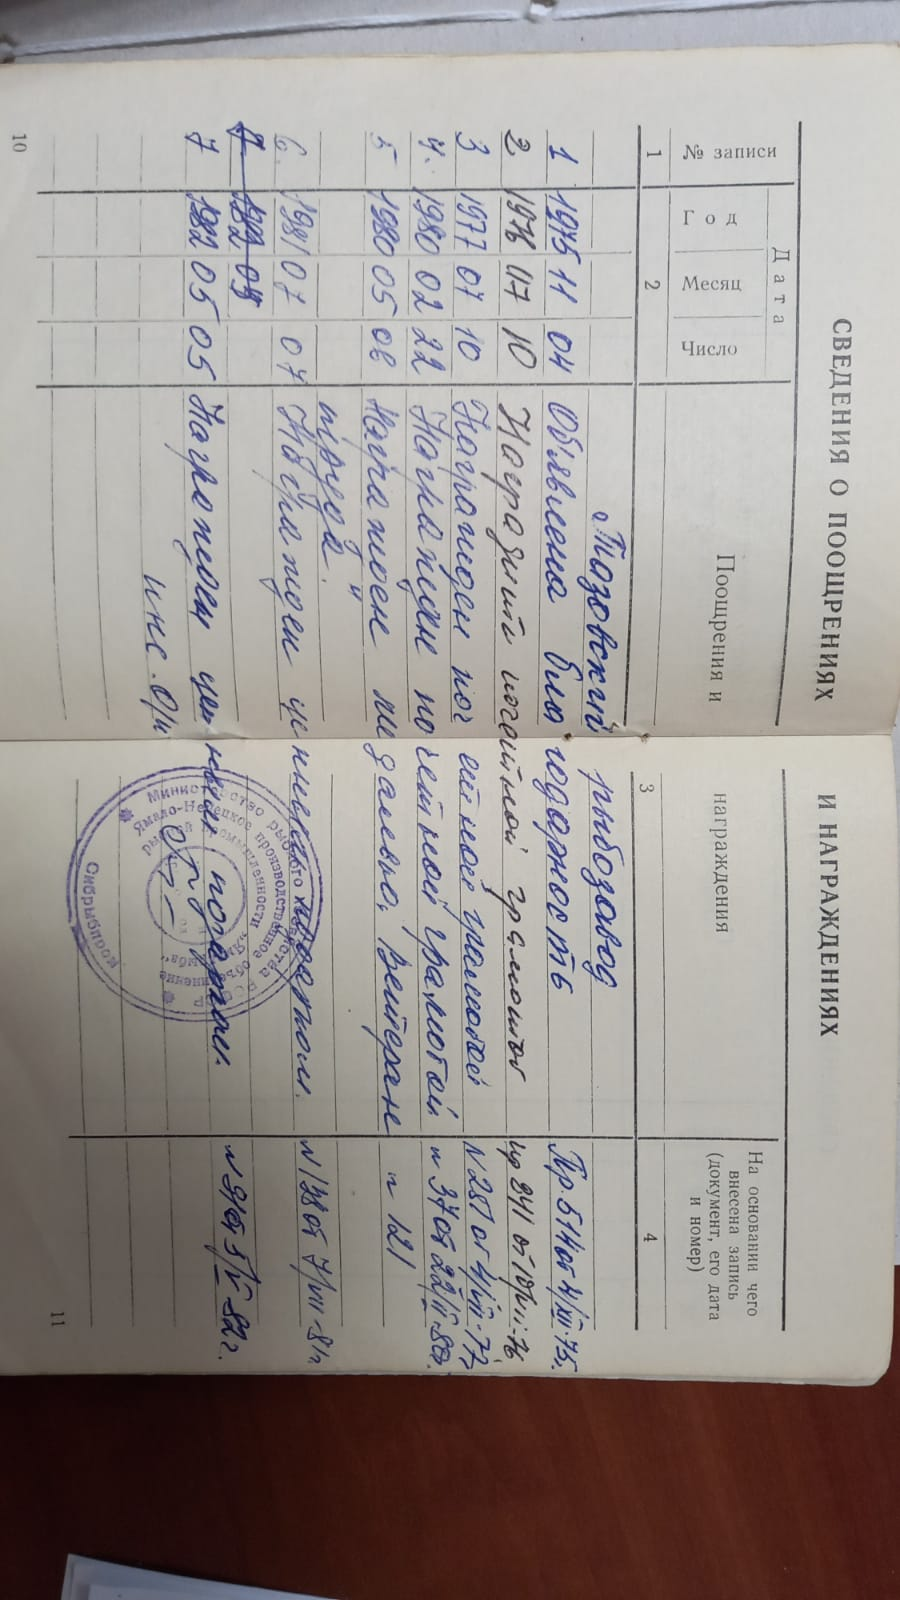 СВЕДЕНИЯ О ПООЩРЕНИЯХ И НАГРАЖДЕНИЯХ
№ записи
Дата
Год Месяц Число
Поощрения и награждения
На основании чего внесена запись (документ, его дата и номер)
1 2 3 4
Тазовский рыбозавод
1 1975 11 04 Объявлена благодарность Пр 514 от 4/XII-75.
2 1976 07 10 почетной грамотой пр 341 от
3 1977 07 10 Награжден почетной грамотой N 281 от 4/VII-77г
4. 1980 02 22 Награжден почетной грамотой п 37 от 22/II-80г.
5 1980 05 08 Награжден медалью „Ветеран п 121
труда"
6. 1981 07 07 Награжден ценным подарком. N 138 от 7/VII-81г
7 1982 05
7 1982 05 05 Награжден ценным подарком. N 91 от 5/V-82г.
инс. о/к
Министерство рыбного хозяйства РСФСР
Сибрыбпром
Ямало-Ненецкое производственное объединение
рыбной промышленности
10
11